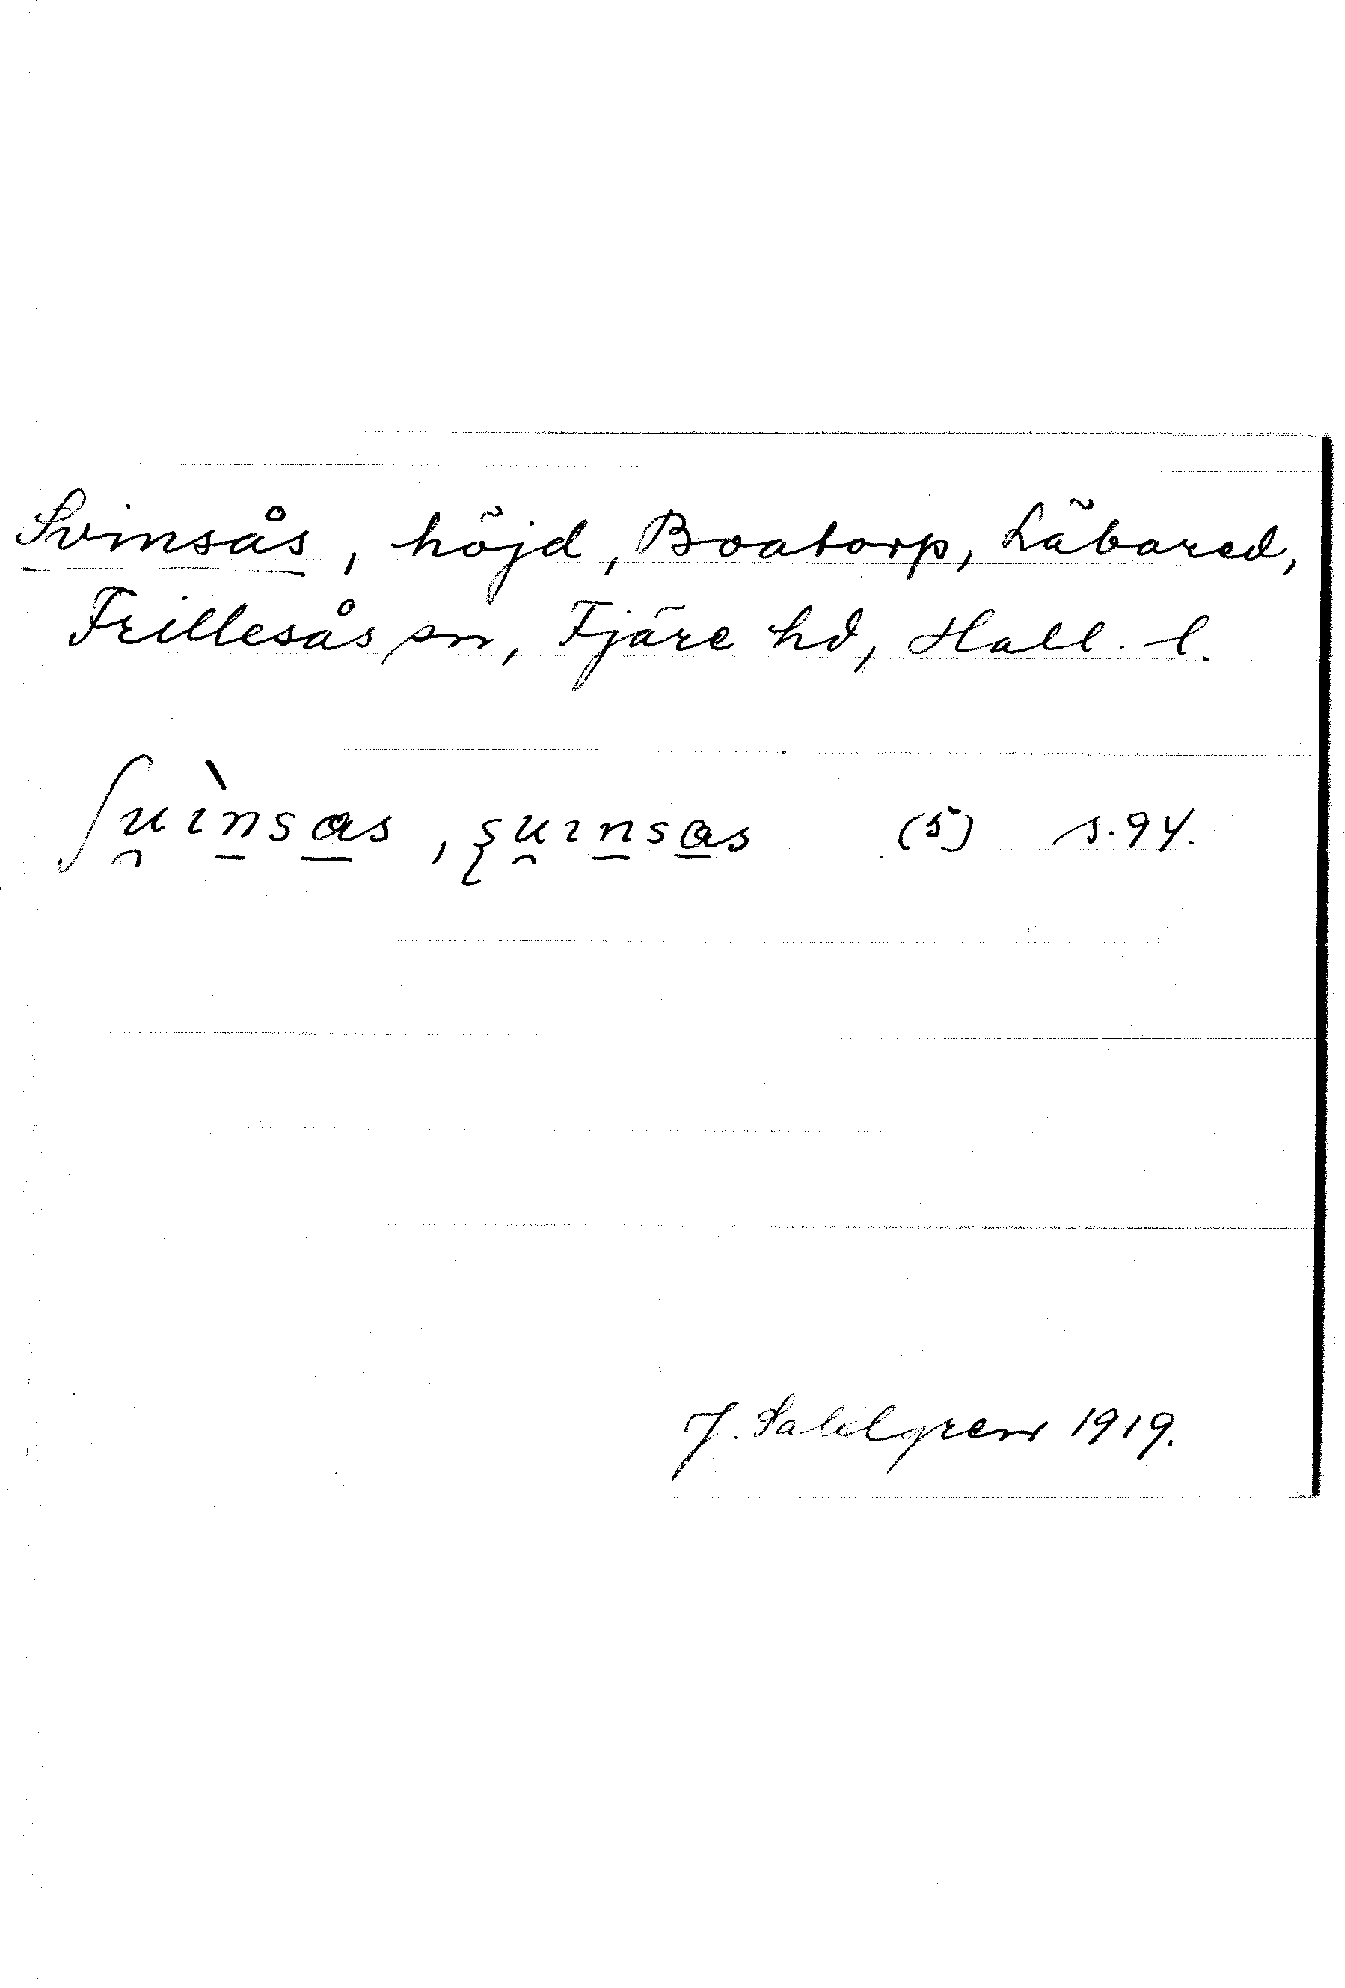 Svinsås, höjd, Boatorp, Läbared,
Frillesås sn, Fjäre hd, Hall. l.
ʃu̯ìn̲sa̲s, ʂu̯ɪn̲sa̲s (5) s. 94.
J. Sahlgren 1919.